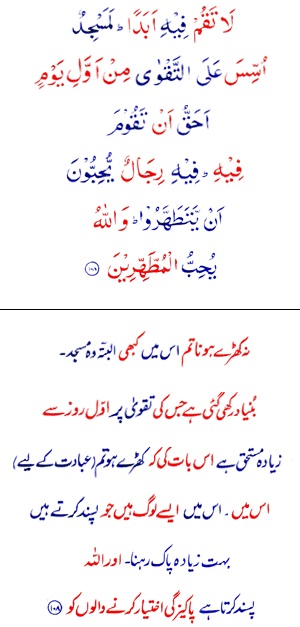 لَا تَقُمْ فِيْهِ اَبَدًا ؕ لَمَسْجِدٌ
اُسِّسَ عَلَى التَّقْوٰى مِنْ اَوَّلِ يَوْمٍ
اَحَقُّ اَنْ تَقُوْمَ
فِيْهِ ؕ فِيْهِ رِجَالٌ يُّحِبُّوْنَ
اَنْ يَّتَطَهَّرُوْا ؕ وَاللّٰهُ
يُحِبُّ الْمُطَّهِّرِيْنَ ۝۱۰۸
نہ کھڑے ہونا تم اس میں کبھی البتہ وہ مسجد۔
بُنیاد رکھی گئی ہے جس کی تقویٰ پر اوّل روز سے
زیادہ مستحق ہے اس بات کی کہ کھڑے ہو تم (عبادت کے لیے)
اس میں۔ اس میں ایسے لوگ ہیں جو پسند کرتے ہیں
بہت زیادہ پاک رہنا۔ اور اللہ
پسند کرتا ہے پاکیزگی اختیار کرنے والوں کو ۝۱۰۸